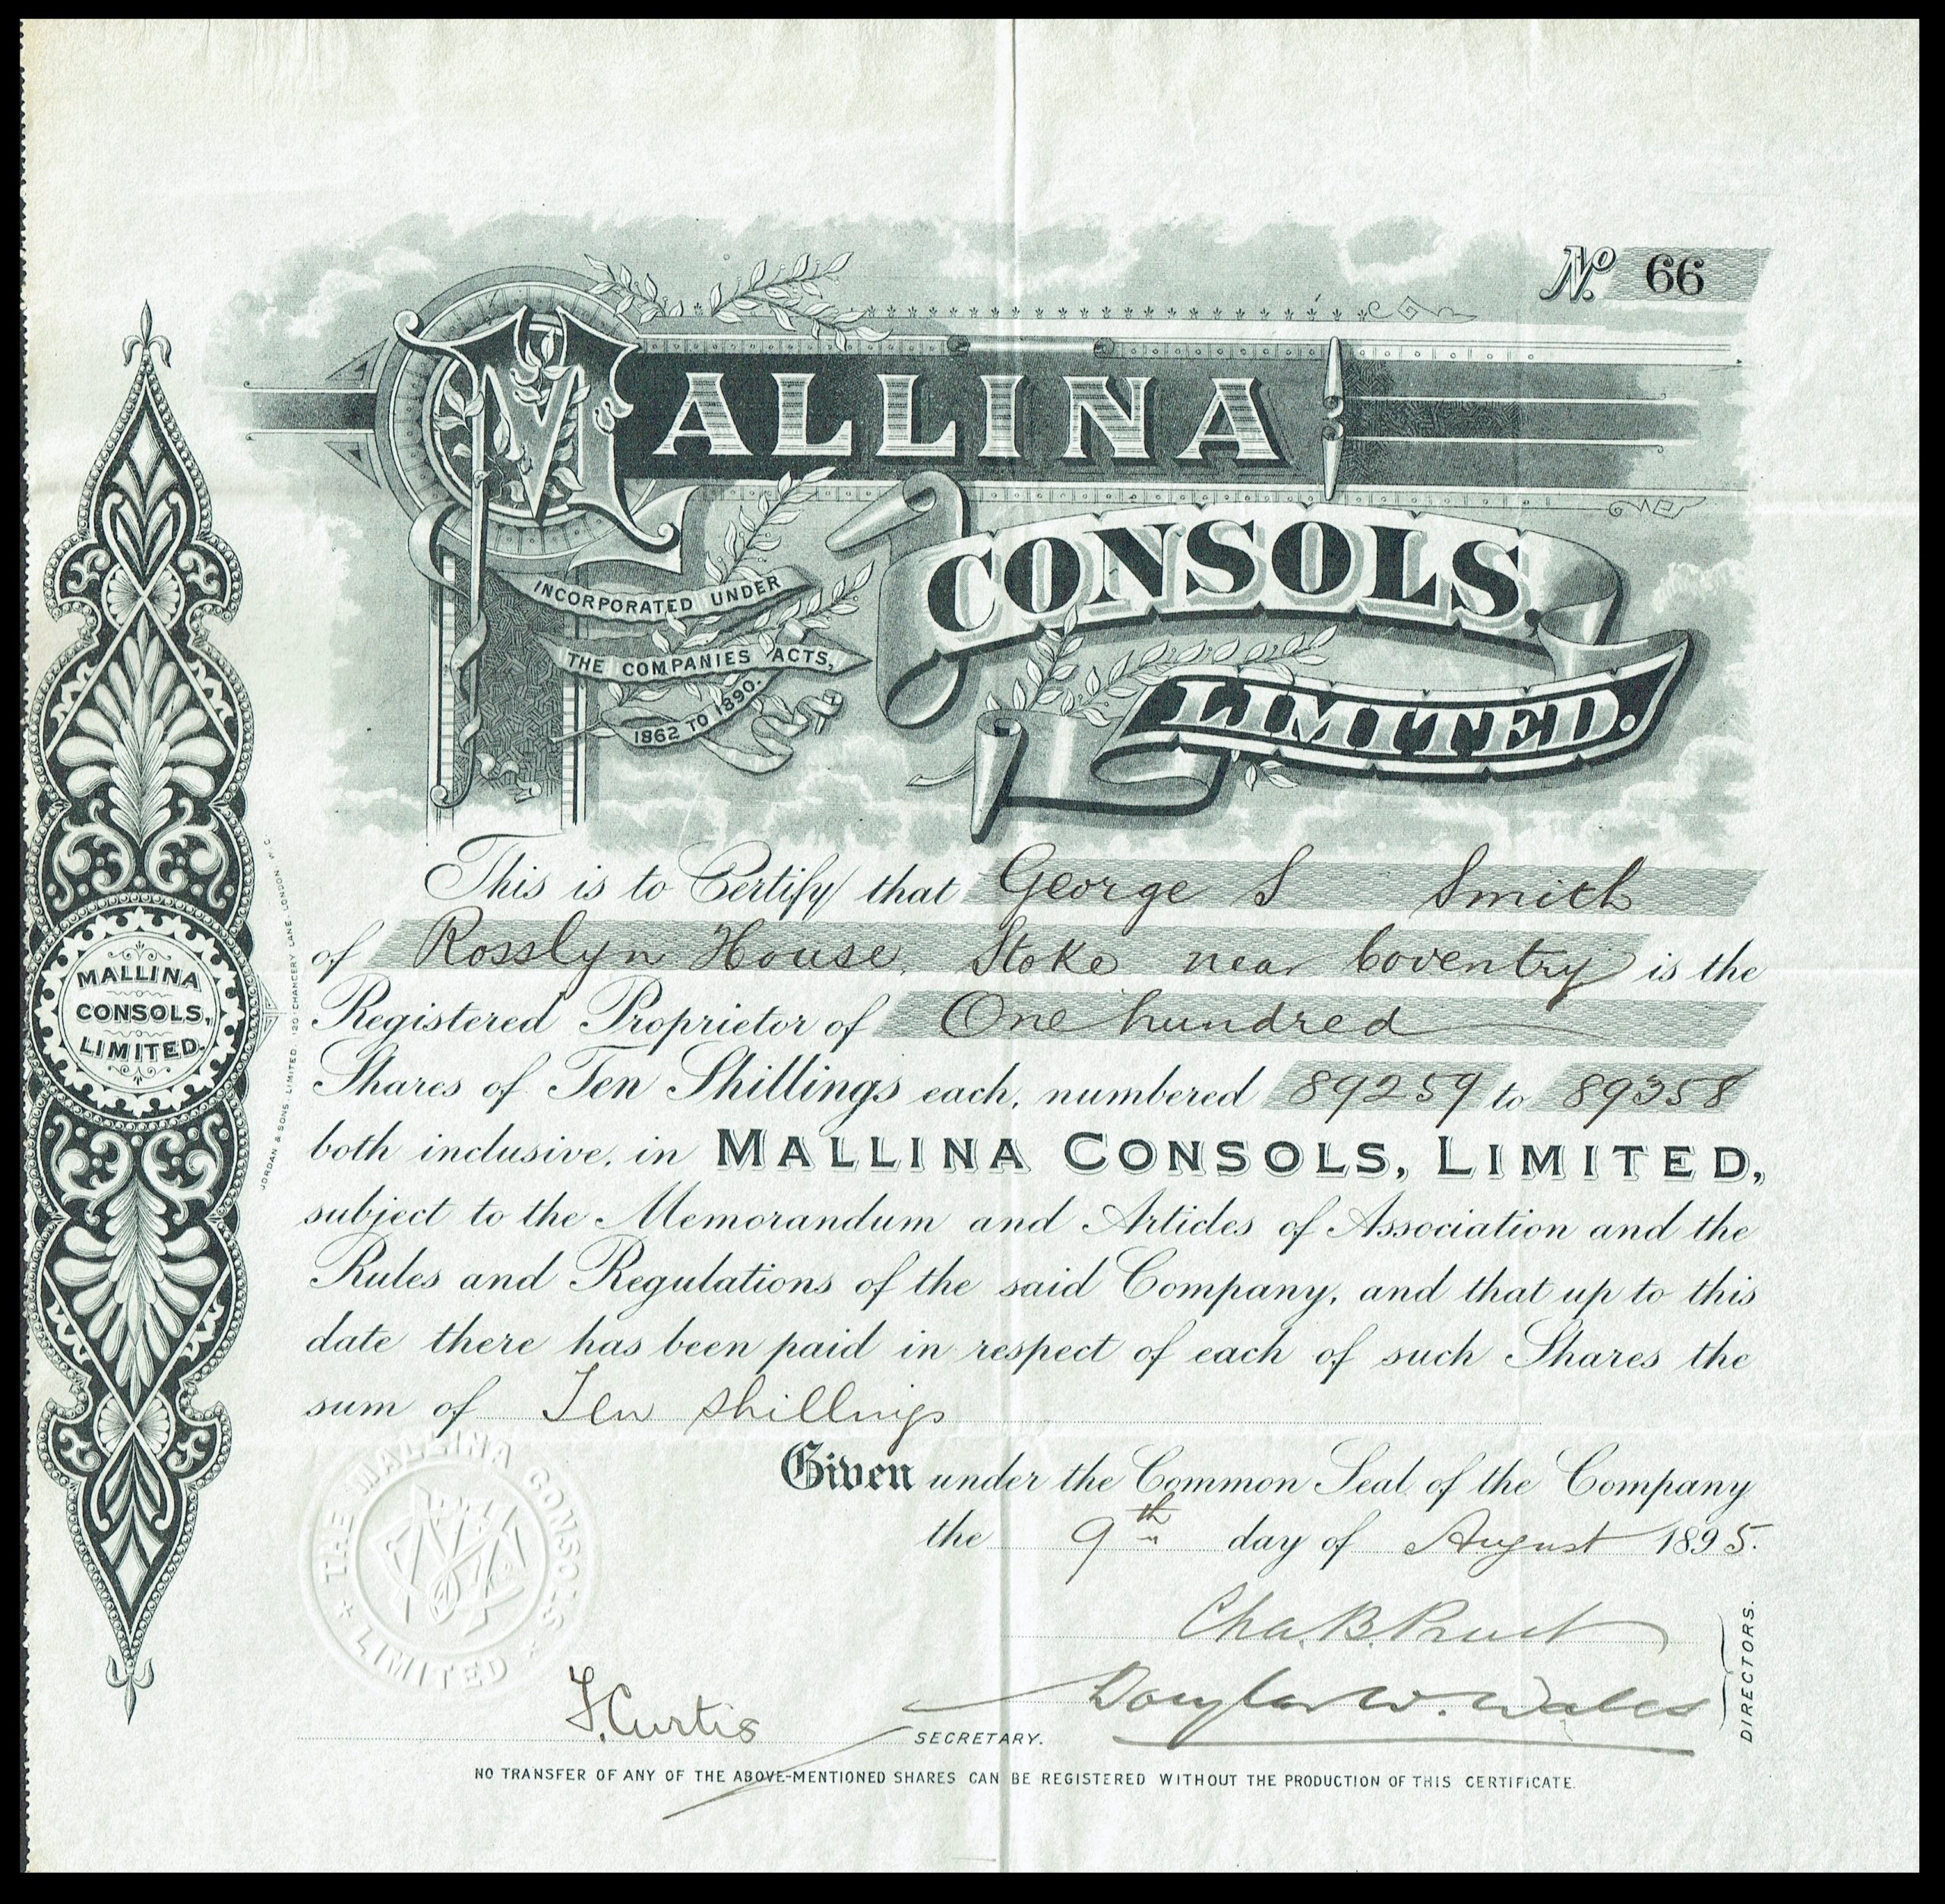 No. 66
MALLINA
CONSOLS,
LIMITED.
INCORPORATED UNDER
THE COMPANIES ACTS,
1862 TO 1890.
This is to Certify that George S Smith
of Rosslyn House, Stoke near Coventry is the
Registered Proprietor of One hundred
Shares of Ten Shillings each, numbered 89259 to 89358
both inclusive, in MALLINA CONSOLS, LIMITED,
subject to the Memorandum and Articles of Association and the
Rules and Regulations of the said Company, and that up to this
date there has been paid in respect of each of such Shares the
sum of Ten shillings
Given under the Common Seal of the Company
the 9th day of August 1895.
Cha. B.
Douglas W. Wales
DIRECTORS.
F. Curtis
SECRETARY.
NO TRANSFER OF ANY OF THE ABOVE-MENTIONED SHARES CAN BE REGISTERED WITHOUT THE PRODUCTION OF THIS CERTIFICATE.
MALLINA
CONSOLS,
LIMITED.
JORDAN & SONS, LIMITED, 120 CHANCERY LANE, LONDON, W.C.
THE MALLINA CONSOLS
LIMITED